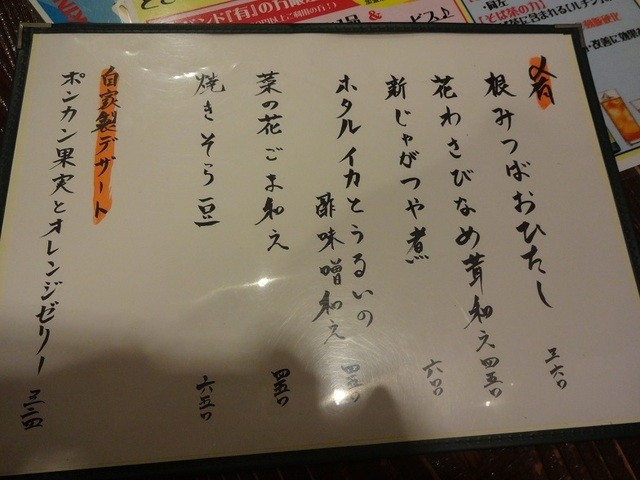 肴
根みつばおひたし 三六〇
花わさびなめ茸和え 四五〇
新じゃがつや煮 六〇〇
ホタルイカとうるいの
酢味噌和え
菜の花ごま和え 四五〇
焼きそら豆 六三〇
自家製デザート
ポンカン果実とオレンジゼリー
「そば茶の力」